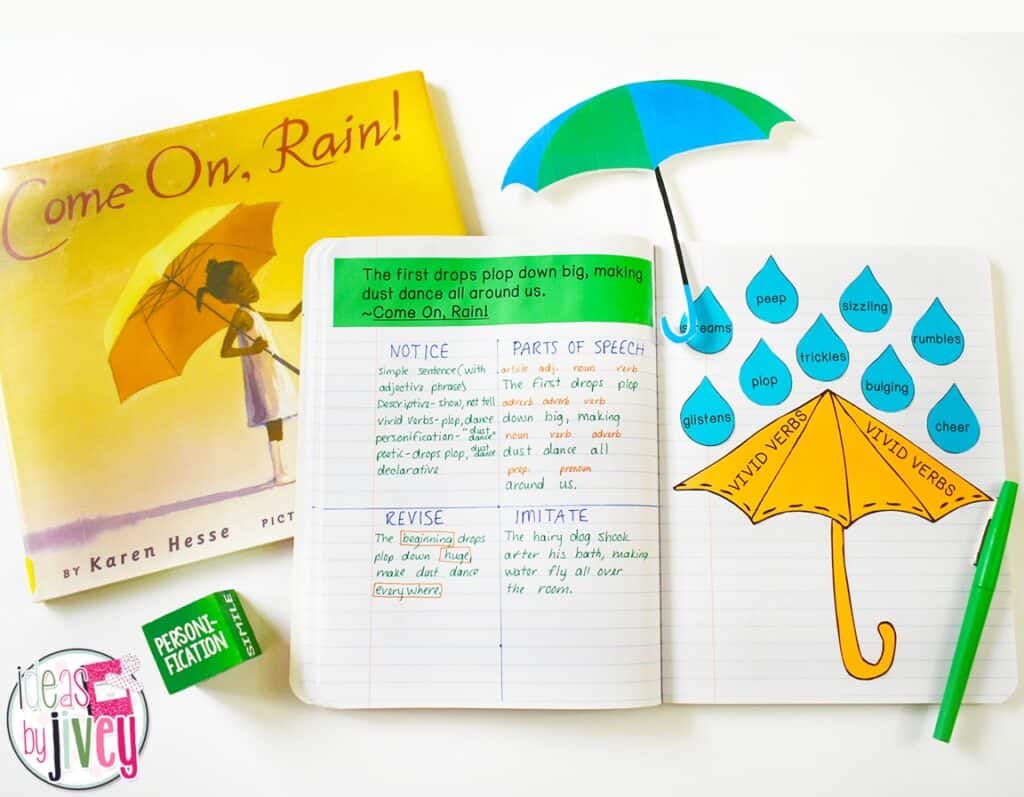 Come On, Rain!
BY Karen Hesse PICT
The first drops plop down big, making
dust dance all around us.
~Come On, Rain!
NOTICE
simple sentence (with
adjective phrase)
Descriptive-show, not tell
vivid verbs-plop, dance
personification- "dust dance"
poetic-drops plop, dust dance
declarative
PARTS OF SPEECH
article adj. noun verb
The first drops plop
adverb adverb verb
down big, making
noun verb adverb
dust dance all
prep. pronoun
around us.
REVISE
The beginning drops
plop down huge,
make dust dance
everywhere.
IMITATE
The hairy dog shook
after his bath, making
water fly all over
the room.
peep
sizzling
rumbles
trickles
plop
bulging
glistens
cheer
VIVID VERBS
VIVID VERBS
PERSONI-
FICATION
SIMILE
ideas
by jivey